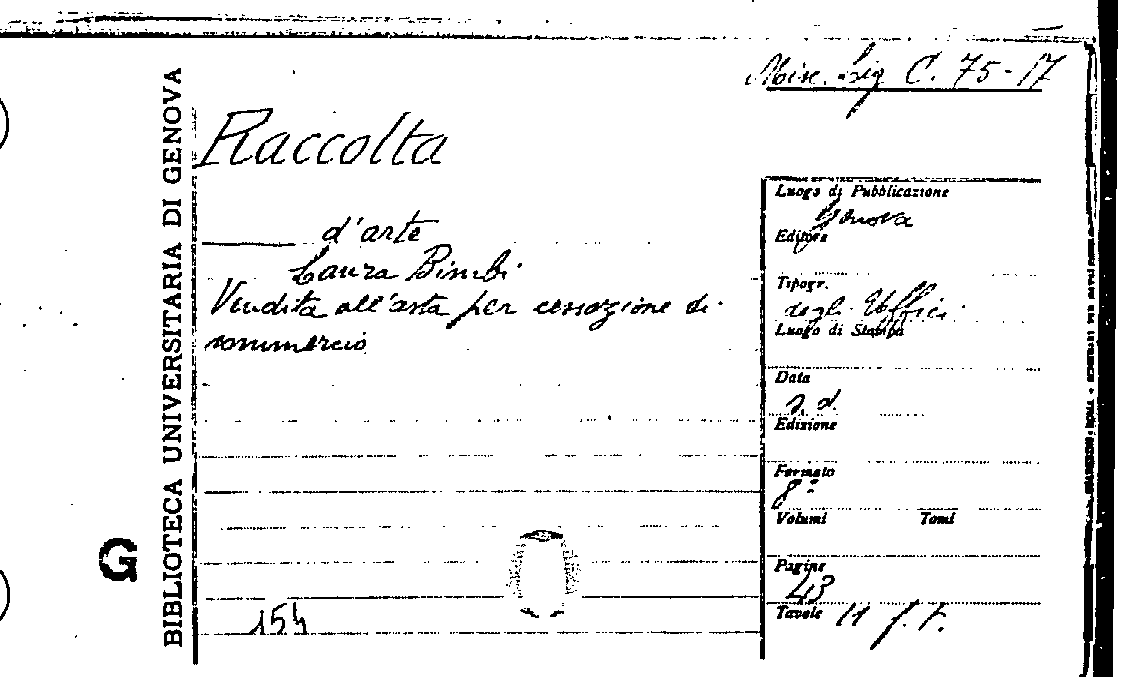 Misc. Lig C. 75-17
Raccolta
d'arte
Laura Bimbi
Vendita all'asta per cessazione di
commercio
154
BIBLIOTECA UNIVERSITARIA DI GENOVA
G
Luogo di Pubblicazione
Genova
Editore
Tipogr.
degli Uffici
Luogo di Stampa
Data
s. d.
Edizione
Formato
8°
Volumi Tomi
Pagine
43
Tavole 11 f. t.